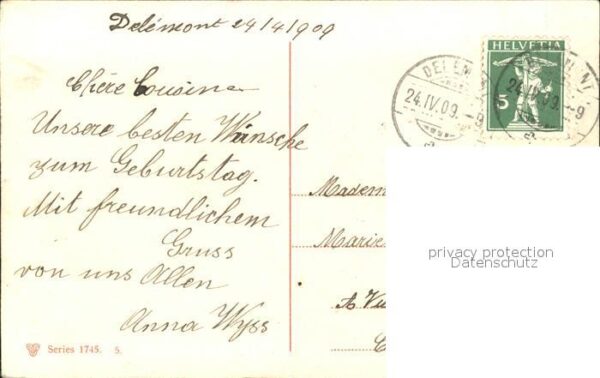 Delémont 24/4/1909
Chère Cousine
Unsere besten Wünsche
zum Geburtstag.
Mit freundlichem
Gruss
von uns Allen
Anna Wyss
Series 1745. 5.
HELVETIA
5
DELÉM
24.IV.09.-9
24.IV.09.-9
Madem
Marie
A Vu
privacy protection
Datenschutz